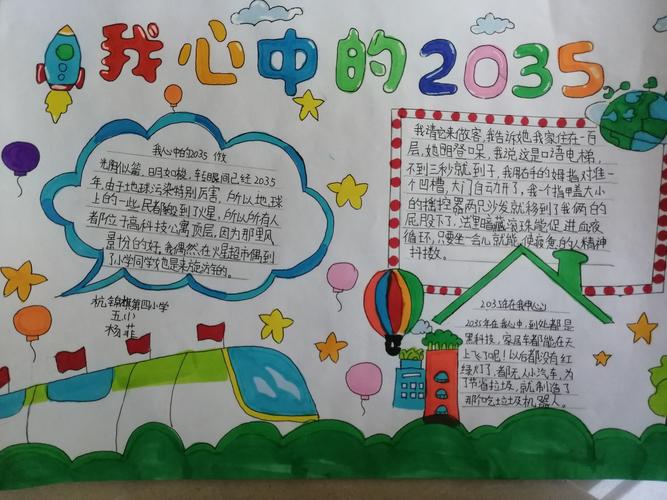 我心中的2035
我心中的2035 作文
光阴似箭,日月如梭,转眼间已经2035
年,由于地球污染特别厉害,所以地球
上的一些民都搬到了火星,所以所有人
都位于高科技公寓顶层,因为那里风
景份的好,我偶然在火星超市偶到
了小学同学她也是来旅游的。
杭锦旗第四小学
五小
杨菲
我请它来做客,我告诉她我家住在一百
层,她目瞪口呆,我说这是口语电梯,
不到三秒就到了,我用右手的姆指对准一
个凹槽,大门自动开了,我一个指甲盖大小
的摇控器两只沙发就移到了我俩的
屁股下了,这里暗藏滚珠能促进血夜
循环,只要坐一会儿就能使疲惫的人精神
抖擞。
2035年在我中心
2035年在我心中,到处都是
黑科技,家庭车都能在天
上飞了呢!以后都没有红
绿灯了,都无人小汽车,为
了节省垃圾,就制造了
那个吃垃圾机器人。